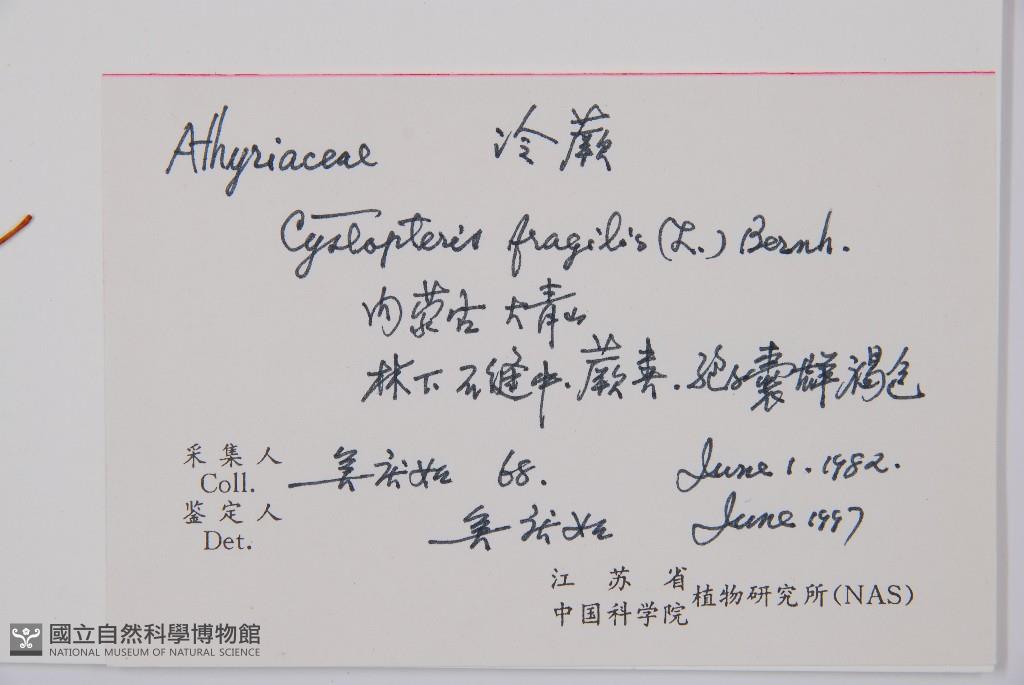 Athyriaceae 冷蕨
Cystopteris fragilis (L.) Bernh.
内蒙古 大青山
林下石缝中、蕨类.孢子囊群褐色
采集人
Coll. 吴 68. June 1. 1982.
鉴定人
Det. 吴 June 1997
江苏省
中国科学院 植物研究所(NAS)
國立自然科學博物館
NATIONAL MUSEUM OF NATURAL SCIENCE